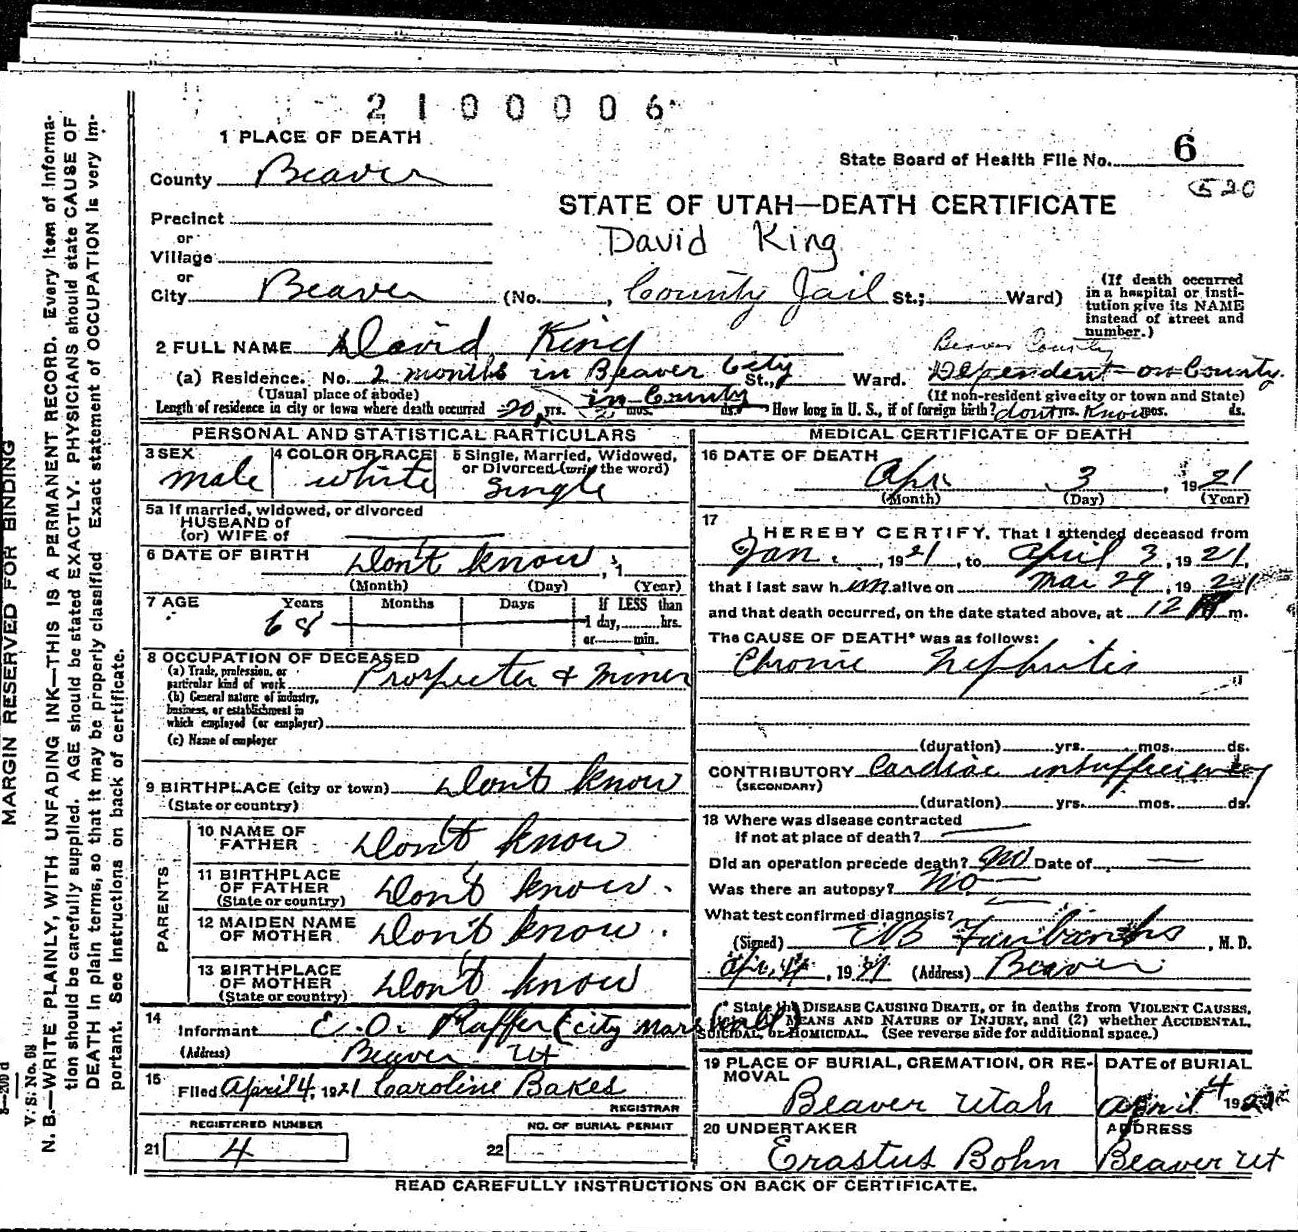 2100006
1 PLACE OF DEATH
State Board of Health File No. 6
County Beaver
520
STATE OF UTAH—DEATH CERTIFICATE
Precinct
or
David King
Village
or
City Beaver (No. , County Jail St.; Ward)
(If death occurred
in a hospital or insti-
tution give its NAME
instead of street and
number.)
2 FULL NAME David King
Beaver County
(a) Residence. No. 2 months in Beaver City St., Ward. Dependent on County.
(Usual place of abode) in County (If non-resident give city or town and State)
Length of residence in city or town where death occurred 20 yrs. 2 mos. ds. How long in U. S., if of foreign birth? dont yrs. Know mos. ds.
PERSONAL AND STATISTICAL PARTICULARS
3 SEX
male
4 COLOR OR RACE
white
5 Single, Married, Widowed,
or Divorced (write the word)
Single
5a If married, widowed, or divorced
HUSBAND of
(or) WIFE of
6 DATE OF BIRTH Don't know, 1
(Month) (Day) (Year)
7 AGE Years Months Days If LESS than
68 1 day, hrs.
or min.
8 OCCUPATION OF DECEASED
(a) Trade, profession, or
particular kind of work Prospecter & Miner
(b) General nature of industry,
business, or establishment in
which employed (or employer)
(c) Name of employer
9 BIRTHPLACE (city or town) Don't know
(State or country)
PARENTS
10 NAME OF
FATHER Don't know
11 BIRTHPLACE
OF FATHER Don't know.
(State or country)
12 MAIDEN NAME
OF MOTHER Don't know.
13 BIRTHPLACE
OF MOTHER Don't know
(State or country)
14
Informant E. O. Raffer (city Marshall)
(Address) Beaver Ut
15 Filed April 4, 1921 Caroline Bakes
REGISTRAR
REGISTERED NUMBER
21 4
NO. OF BURIAL PERMIT
22
MEDICAL CERTIFICATE OF DEATH
16 DATE OF DEATH
Apr. 3, 1921
(Month) (Day) (Year)
17
I HEREBY CERTIFY, That I attended deceased from
Jan., 1921, to April 3, 1921,
that I last saw him alive on Mar 29, 1921
and that death occurred, on the date stated above, at 12 m.
The CAUSE OF DEATH* was as follows:
Chronic Nephritis
(duration) yrs. mos. ds.
CONTRIBUTORY Cardiac insufficiency
(SECONDARY)
(duration) yrs. mos. ds.
18 Where was disease contracted
if not at place of death?
Did an operation precede death? no Date of
Was there an autopsy? no
What test confirmed diagnosis?
(Signed) Fairbanks, M. D.
Apr. 4, 1921 (Address) Beaver
* State the DISEASE CAUSING DEATH, or in deaths from VIOLENT CAUSES,
MEANS AND NATURE OF INJURY, and (2) whether ACCIDENTAL,
SUICIDAL, or HOMICIDAL. (See reverse side for additional space.)
19 PLACE OF BURIAL, CREMATION, OR RE-
MOVAL
Beaver Utah
DATE of BURIAL
April 4 1921
20 UNDERTAKER
Erastus Bohn
ADDRESS
Beaver Ut
READ CAREFULLY INSTRUCTIONS ON BACK OF CERTIFICATE.
MARGIN RESERVED FOR BINDING
V. S. No. 68
N. B.—WRITE PLAINLY, WITH UNFADING INK—THIS IS A PERMANENT RECORD. Every item of informa-
tion should be carefully supplied. AGE should be stated EXACTLY. PHYSICIANS should state CAUSE OF
DEATH in plain terms, so that it may be properly classified. Exact statement of OCCUPATION is very im-
portant. See instructions on back of certificate.